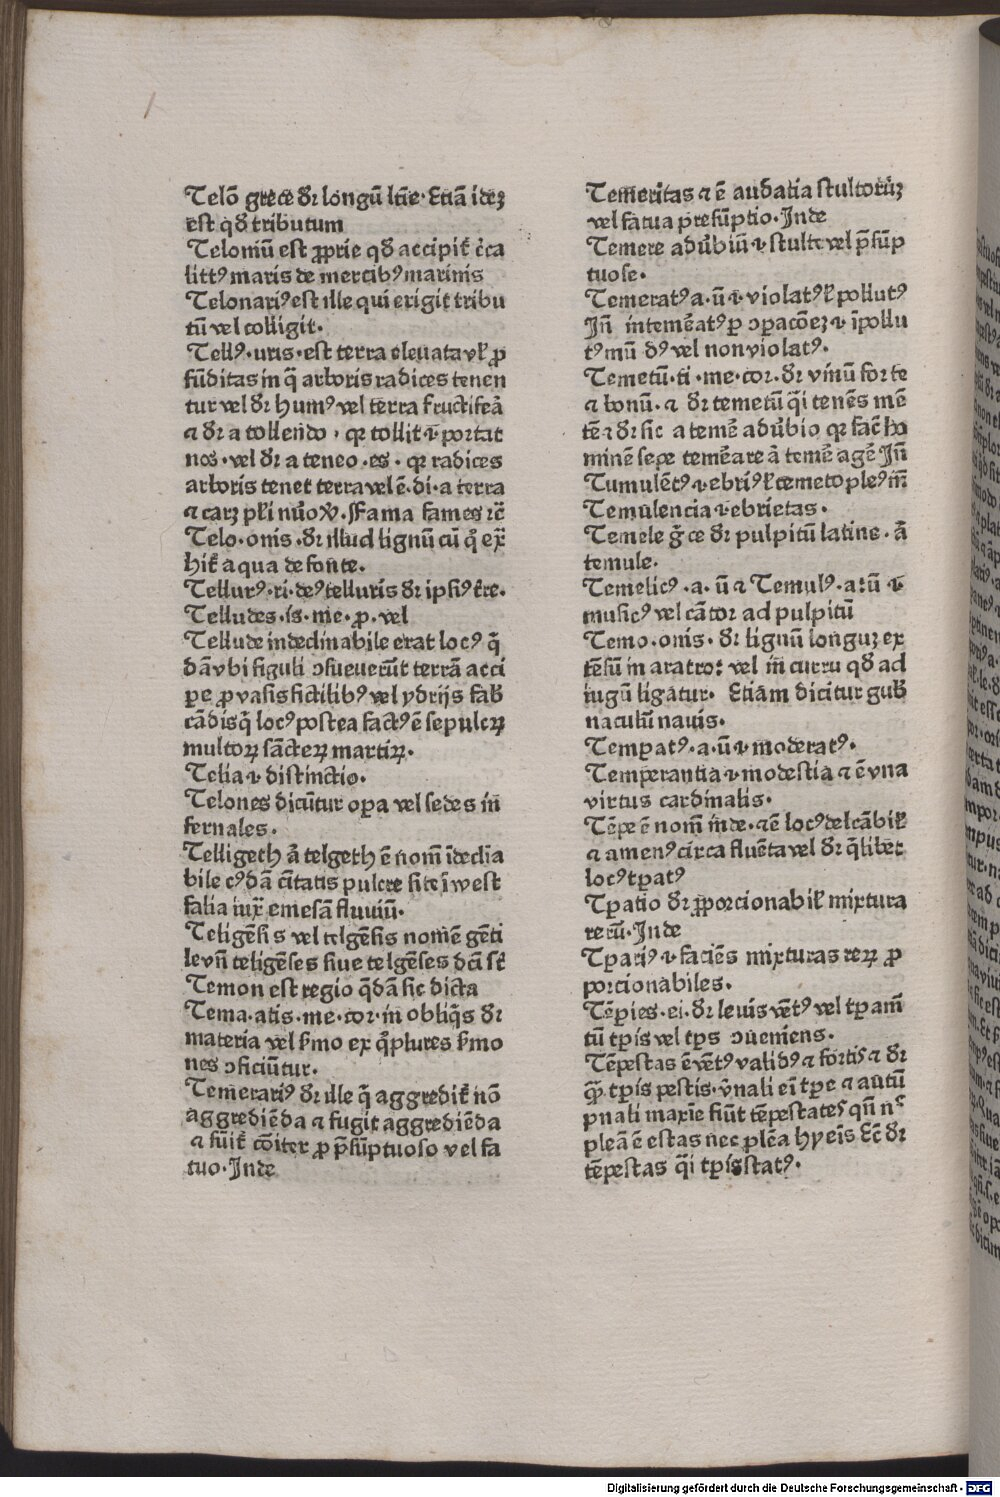 Telō grece dr̄ longū ltīe· Etiā ideꝫ
est qđ tributum
Telomū est ꝓprie qđ accipit̉ c̄ca
litt⁹ maris de mercib⁹ marinis
Telonari⁹ est ille qui exigit tribu
tū vel colligit·
Tell⁹·uris·est terra eleuata vl̉ ꝓ
fūditas in q̄ arboris radices tenen
tur vel dr̄ hum⁹ vel terra fructifeā
⁊ dr̄ a tollendo · qꝛ tollit ⁊ portat
nos·vel dr̄ a teneo·es· qꝛ radices
arboris tenet terra vel ē·di·a terra
⁊ carꝫ
Telo·onis·dr̄ illud lignū cū q̄ ex̄
hit̉ aqua de fonte·
Tellur⁹·ri·de⁹ telluris dr̄ ipsi⁹ t̄re·
Telludes·is·me·ꝓ·vel
Tellude indeclinabile erat loc⁹ q̄
dā vbi figuli ↄsueuerūt terrā acci
ꝑe ꝓ vasis fictilib⁹ vel ydrijs fab̄
cādis q̄ loc⁹ postea fact⁹ ē sepulcꝝ
multoꝝ sācteꝝ martiꝝ·
Telia ·i· distinctio·
Telones dicūtur oꝑa vel sedes in̄
fernales·
Telligeth ā telgeth ē nom̄ īdeclīa
bile c⁹dā cītatis pulcre site ī west
falia iux̄ emesā fluuiū·
Teligēsis vel telgēsis nomē gēti
le vn̄ teligēses siue telgēses dc̄i st̄
Temon est regio q̄dā sic dicta
Tema·atis·me·cor·in obliq̄s dr̄
materia vel s̄mo ex q̄ plures s̄mo
nes ↄficiūtur·
Temerari⁹ dr̄ ille q̄ aggredit̉ nō
aggrediēda ⁊ fugit aggrediēda
⁊ sūit̉ cōiter ꝓ p̄sūptuoso vel fa
tuo·Inde
Temeritas ⁊ ē audatia stultorūꝫ
vel fatua presūptio·Inde
Temere adūbiū ·i· stulte vel p̄sūp
tuose·
Temerat⁹ a·ū ·i· violat⁹ l̉ pollut⁹
Jn̄ intemēat⁹ ꝑ ↄꝑacōeꝫ ·i· īpollu
t⁹ mūd⁹ vel non violat⁹·
Temetū·ti·me·cor·dr̄ vinū forte
⁊ bonū·⁊ dr̄ temetū q̄i tenēs mē
tē ⁊ dr̄ sic a temē adūbio qꝛ fac̄ ho
minē sepe temēare ā temē agē Jn̄
Tumulēt⁹ ·i· ebri⁹ l̉ temeto ple⁹ in̄
Temulencia ·i· ebrietas·
Temele ḡce dr̄ pulpitū latine·ā
temule·
Temelic⁹·a·ū ⁊ Temul⁹·a:ū ·i·
music⁹ vel cātor ad pulpitū
Temo·onis·dr̄ lignū longuꝫ ex
tēsū in aratro: vel in̄ curru qđ ad
iugū ligatur· Etiam dicitur gub̄
naculū nauis·
Temꝑat⁹·a·ū ·i· moderat⁹·
Temperantia ·i· modestia ⁊ ē vna
virtus cardinalis·
Tēpe ē nom̄ īnde·⁊ē loc⁹ delcābil̉
⁊ amen⁹ circa fluēta vel dr̄ q̄libet
loc⁹ tꝑat⁹
Tꝑatio dr̄ ꝓporcionabil̉ mixtura
rerū·Inde
Tꝑari⁹ ·i· faciēs mixturas reꝝ ꝓ
porcionabiles·
Tēpies·ei·dr̄ leuis vēt⁹ vel tꝑam̄
tū tꝑis vel tꝑs ↄueniens·
Tēpestas ē vēt⁹ valid⁹ ⁊ fortis ⁊ dr̄
tꝑis pestis·v̄nali eī tꝑe ⁊ autū
pnali maxīe fiūt tēpestates qn̄ n̄
pleā ē estas nec plēa hyēis Ec̄ dr̄
tēpestas q̄i tꝑis stat⁹·
Digitalisierung gefördert durch die Deutsche Forschungsgemeinschaft - DFG